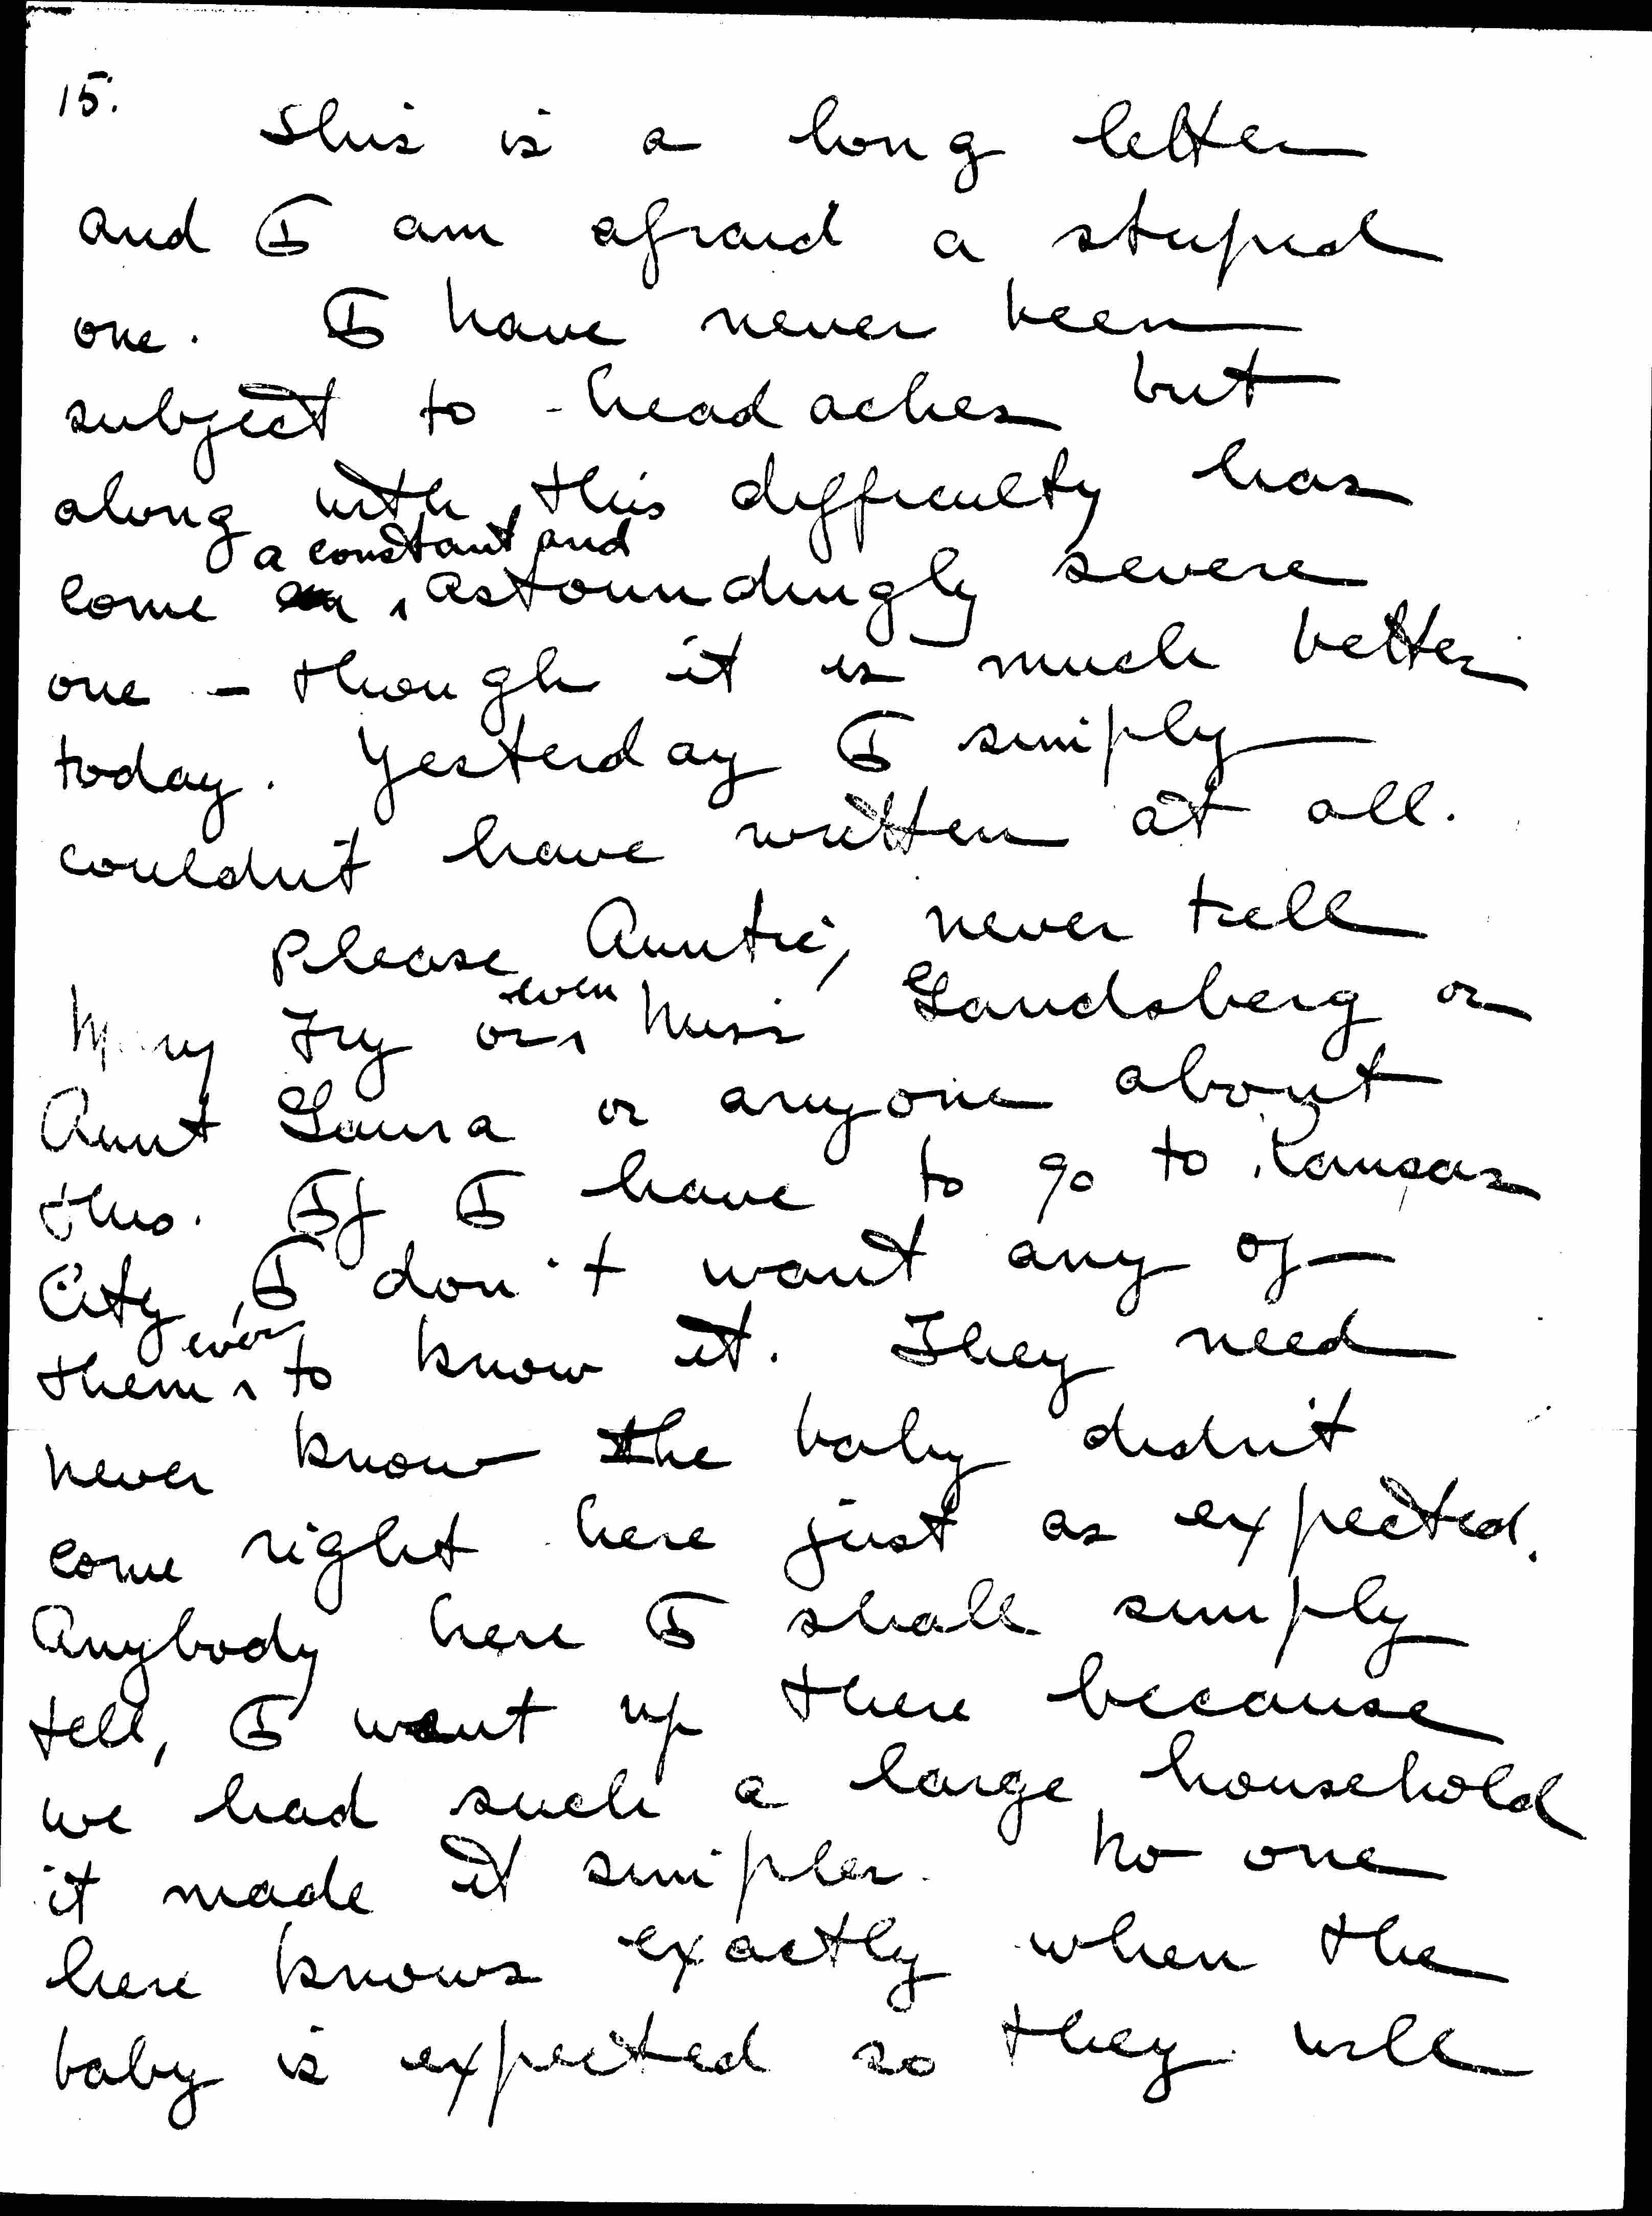 15.
This is a long letter
and I am afraid a stupid
one. I have never been
subject to headaches but
along with this difficulty has
a constant and
come astoundingly severe
one - though it is much better
today. Yesterday I simply
couldn't have written at all.
Please, Auntie, never tell
even
Mary Fry or Miss Landsberg or
Aunt Laura or anyone about
this. If I have to go to Kansas
City, I don't want any of
ever
them to know it. They need
never know the baby didn't
come right here just as expected.
Anybody here I shall simply
tell, I went up there because
we had such a large household
it made it simpler. No one
here knows exactly when the
baby is expected so they will